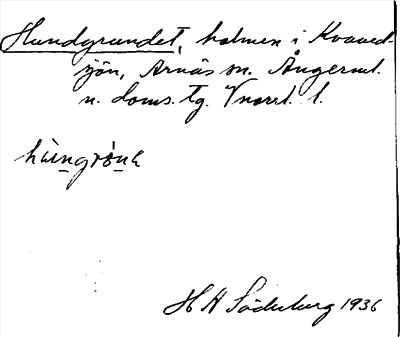 Hundgrundet, holmen i Kvaved-
sjön, Arnäs sn. Ångerml.
n. doms. tg. Vnorrl. l.
hùngrònɛ
H H Söderberg 1936